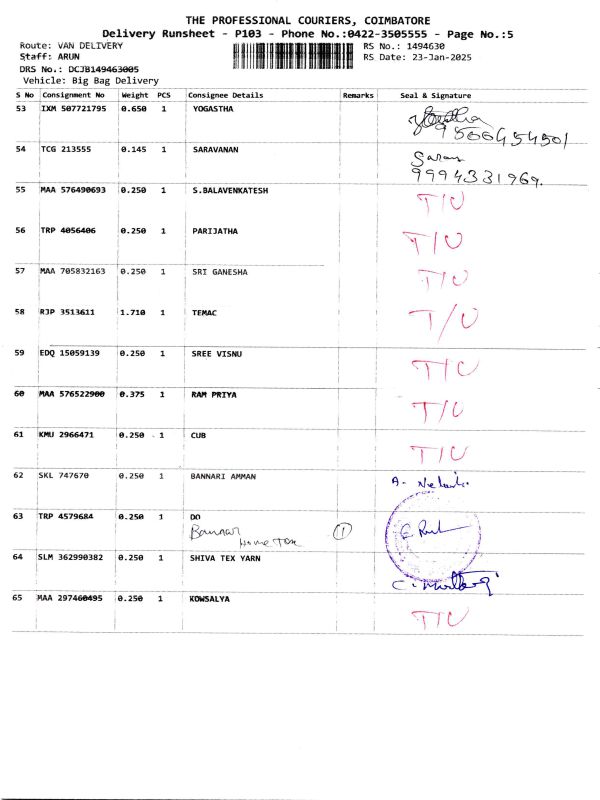 THE PROFESSIONAL COURIERS, COIMBATORE
Delivery Runsheet - P103 - Phone No.:0422-3505555 - Page No.:5
Route: VAN DELIVERY RS No.: 1494630
Staff: ARUN RS Date: 23-Jan-2025
DRS No.: DCJB149463005
Vehicle: Big Bag Delivery
S No Consignment No Weight PCS Consignee Details Remarks Seal & Signature
53 IXM 507721795 0.650 1 YOGASTHA
9566454501
54 TCG 213555 0.145 1 SARAVANAN Saran
9994331969.
55 MAA 576490693 0.250 1 S.BALAVENKATESH T/U
56 TRP 4056406 0.250 1 PARIJATHA T/U
57 MAA 705832163 0.250 1 SRI GANESHA T/U
58 RJP 3513611 1.710 1 TEMAC T/U
59 EDQ 15059139 0.250 1 SREE VISNU T/U
60 MAA 576522900 0.375 1 RAM PRIYA T/U
61 KMU 2966471 0.250 1 CUB T/U
62 SKL 747670 0.250 1 BANNARI AMMAN A.
63 TRP 4579684 0.250 1 DO
Bannar 1
Home Tex
64 SLM 362990382 0.250 1 SHIVA TEX YARN
65 MAA 297460495 0.250 1 KOWSALYA T/U